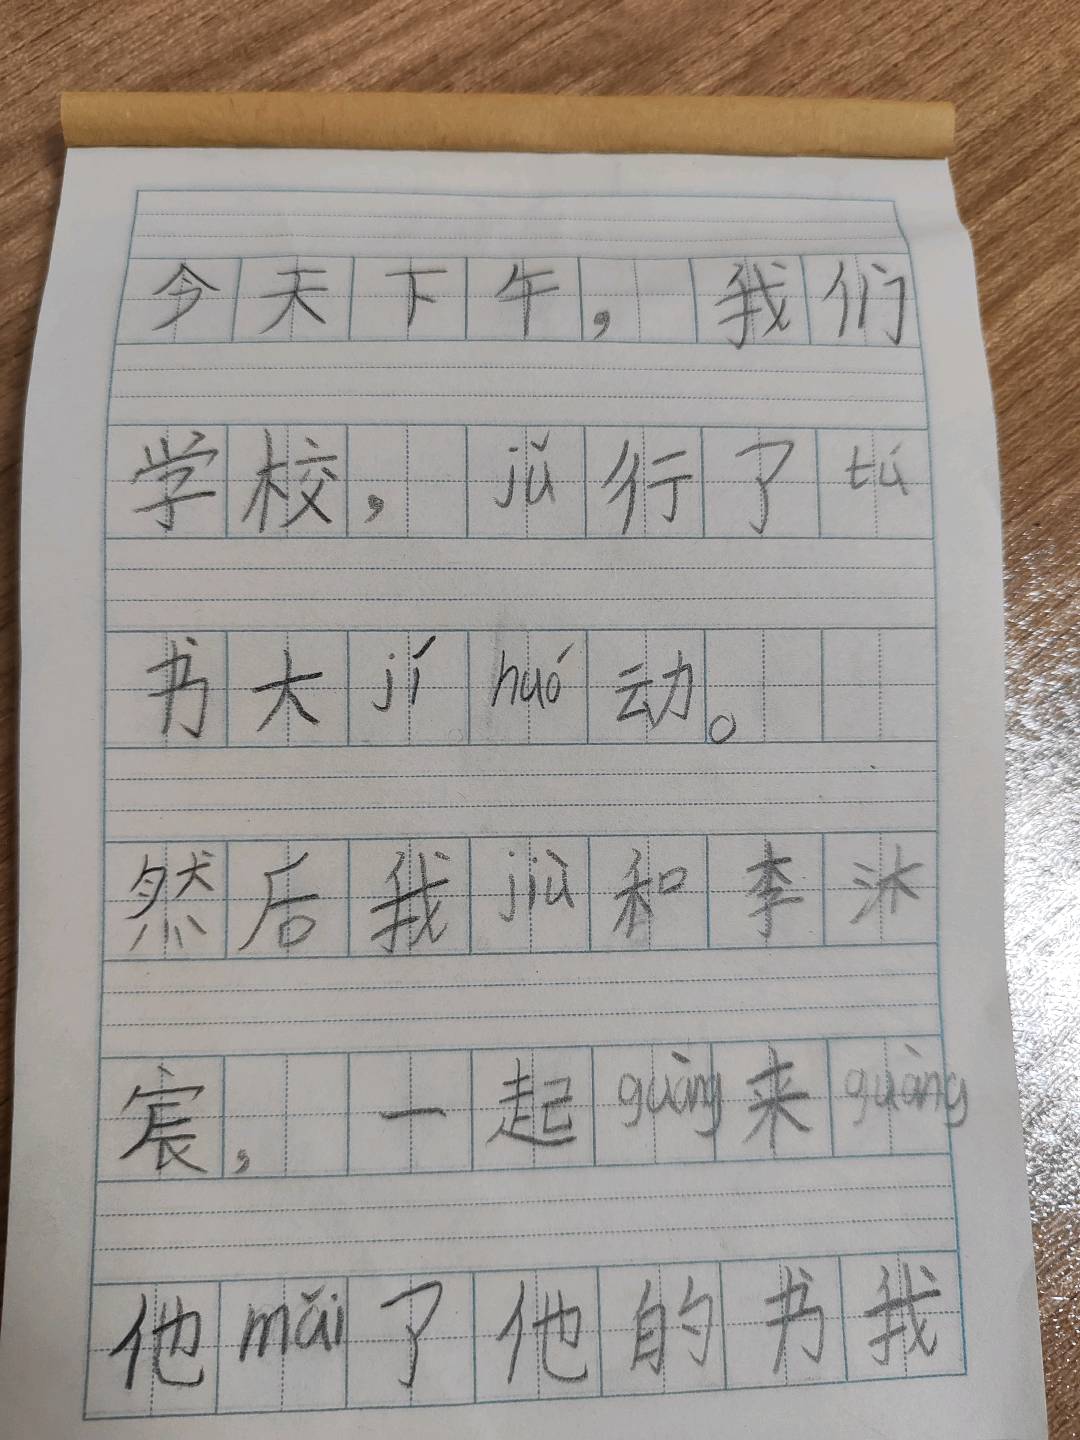 今天下午，我们
学校，jǔ行了tú
书大jí huó动。
然后我jiù和李沐
宸，一起guàng来guàng
他mǎi了他的书我